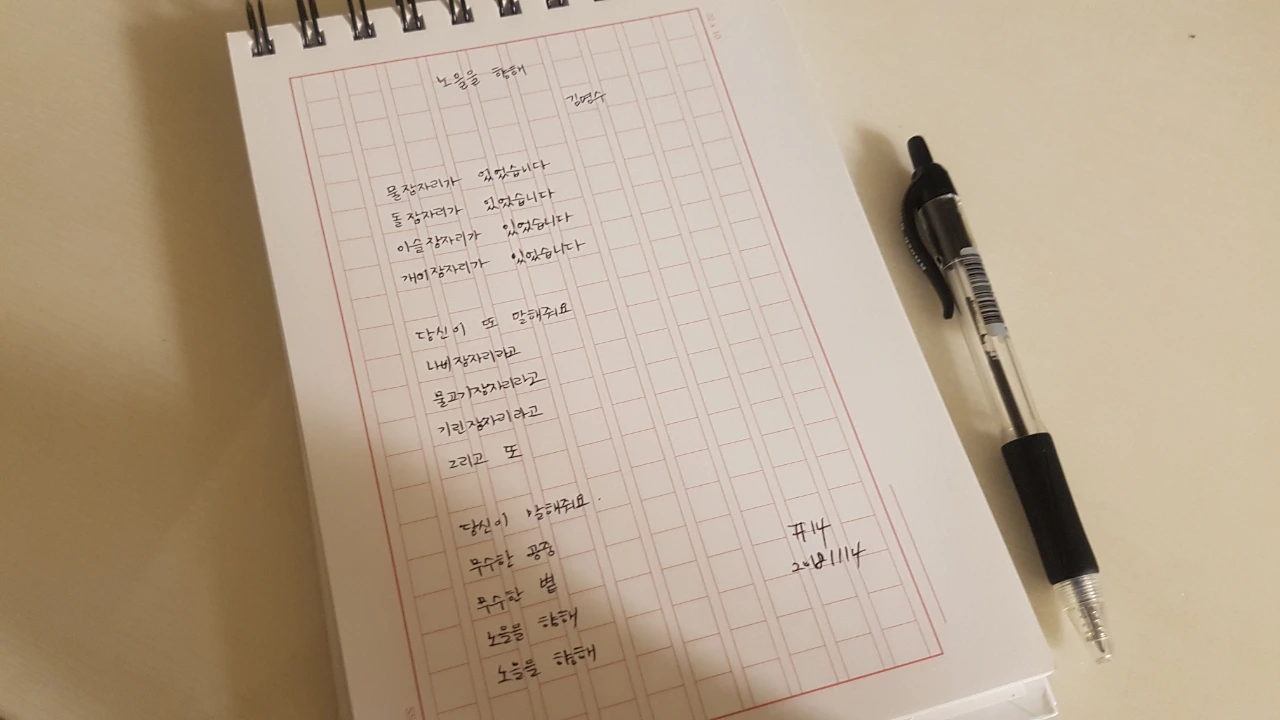 노을을 향해
김영수
물잠자리가 있었습니다
돌잠자리가 있었습니다
이슬잠자리가 있었습니다
개미잠자리가 있었습니다
당신이 또 말해줘요
나비잠자리라고
물고기잠자리라고
기린잠자리라고
그리고 또
당신이 말해줘요.
무수한 광장
무수한 볕
노을을 향해
노을을 향해
#14
20181114